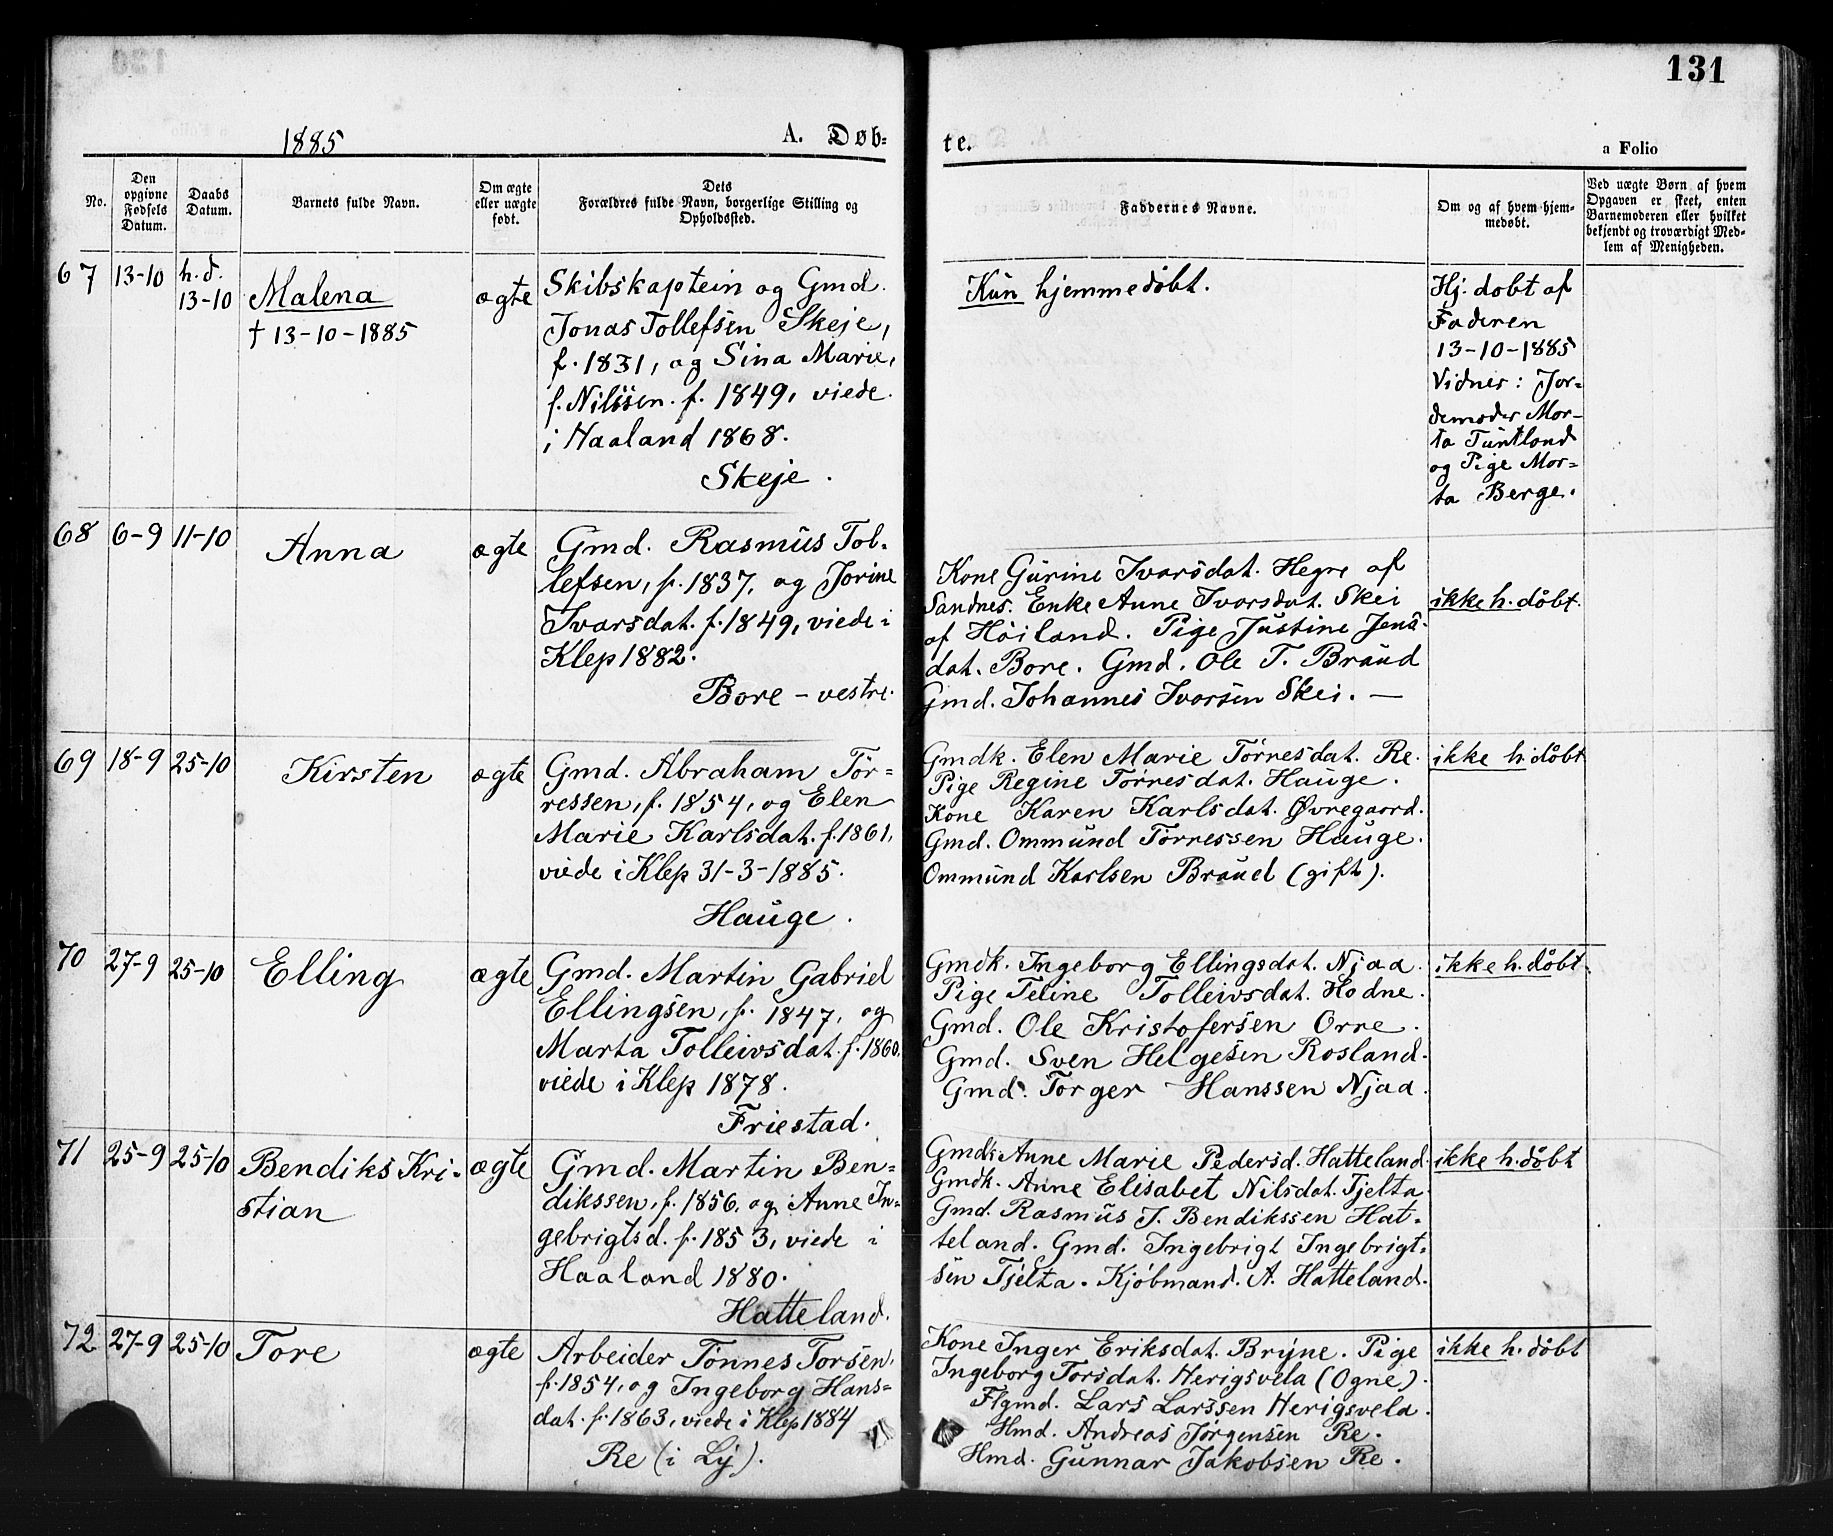 131
1885
A. Døb-
te.
a Folio
No.
Den opgivne Fødsels Datum.
Daabs Datum.
Barnets fulde Navn.
Om ægte eller uægte født.
Dets Forældres fulde Navn, borgerlige Stilling og Opholdssted.
Faddernes Navne.
Om og af hvem hjemmedøbt.
Ved uægte Børn af hvem Opgaven er skeet, enten Barnemoderen eller hvilket bekjendt og troværdigt Medlem af Menigheden.
67
13-10
h. d.
13-10
Malena
† 13-10-1885
ægte
Skibskaptein og Gmd.
Jonas Tollefsen Skeje,
f. 1831, og Sina Marie,
f. Nilssen. f. 1849, viede
i Haaland 1868.
Skeje.
Kun hjemmedøbt.
Hj. døbt af
Faderen
13-10-1885
Vidner: Jor-
demoder Mar-
ta Tuntland
og Pige Mar-
ta Berge.
68
6-9
11-10
Anna
ægte
Gmd. Rasmus Tol-
lefsen, f. 1837, og Jorine
Ivarsdat. f. 1849, viede i
Klep 1882.
Bore - vestre.
Kone Gurine Ivarsdat. Hegre af
Sandnes. Enke Anne Ivarsdat. Skei
af Høiland. Pige Justine Jens-
dat. Bore. Gmd. Ole T. Braud
Gmd. Johannes Ivarsen Skei. —
ikke h. døbt.
69
18-9
25-10
Kirsten
ægte
Gmd. Abraham Tør-
ressen, f. 1854, og Elen
Marie Karlsdat. f. 1861,
viede i Klep 31-3-1885.
Hauge.
Gmdk. Elen Marie Tørresdat. Re.
Pige Regine Tørresdat. Hauge.
Kone Karen Karlsdat. Øvregaard.
Gmd. Ommund Tørressen Hauge.
Ommund Karlsen Braud (gift).
ikke h. døbt
70
27-9
25-10
Elling
ægte
Gmd. Martin Gabriel
Ellingsen, f. 1847, og
Marta Tolleivsdat. f. 1860,
viede i Klep 1878.
Friestad.
Gmdk. Ingeborg Ellingsdat. Njaa.
Pige Teline Tolleivsdat. Hodne.
Gmd. Ole Kristofersen Orre.
Gmd. Sven Helgesen Rosland.
Gmd. Torger Hanssen Njaa.
ikke h. døbt.
71
25-9
25-10
Bendiks Kri-
stian
ægte
Gmd. Martin Ben-
dikssen, f. 1856, og Anne In-
gebrigtsd. f. 1853, viede i
Haaland 1880.
Hatteland.
Gmdk. Anne Marie Pedersd. Hatteland.
Gmdk. Anne Elisabet Nilsdat. Tjelta.
Gmd. Rasmus J. Bendikssen Hat-
teland. Gmd. Ingebrigt Ingebrigt-
sen Tjelta. Kjøbmand. A. Hatteland.
ikke h. døbt
72
27-9
25-10
Tore
ægte
Arbeider Tønnes Torsen,
f. 1854, og Ingeborg Hans-
dat. f. 1863, viede i Klep 1884
Re (i Ly).
Kone Inger Eriksdat. Bryne. Pige
Ingeborg Torsdat. Herigsvela (Ogne).
Flgmd. Lars Larssen Herigsvela.
Hmd. Andreas Jørgensen Re.
Hmd. Gunnar Jakobsen Re.
ikke h. døbt